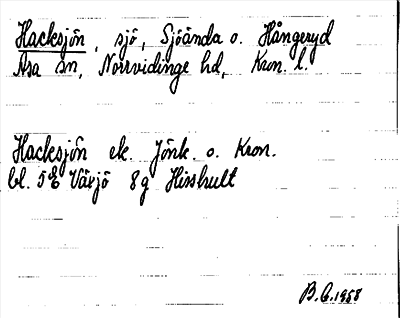 Hacksjön, sjö, Sjöända o. Hångeryd
Asa sn, Norrvidinge hd, Kron. l.
Hacksjön ek. Jönk. o. Kron.
bl. 5E Växjö 8g Hisshult
B.G. 1958